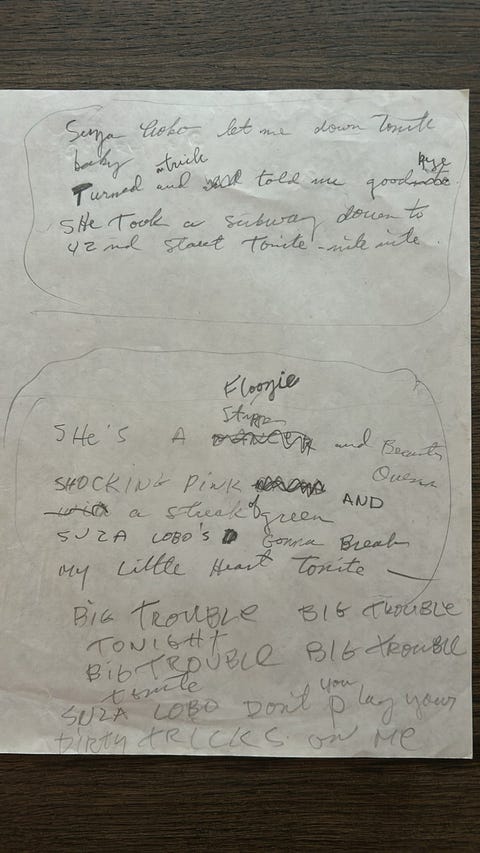 Suza Lobo let me down Tonite
baby trick
Turned and told me goodbye
SHe Took a subway down to
42 nd Street Tonite - nite nite.
Floozie
Stripper
SHe's A DANCER and Beauty
Queen
SHOCKING Pink
with a streak of green AND
SUZA LOBO'S Gonna Break
My Little Heart Tonite —
BIG TROUBLE BIG TROUBLE
TONIGHT
BIG TROUBLE BIG TROUBLE
tonite
SUZA LOBO Don't you play your
DIRTY TRICKS on ME